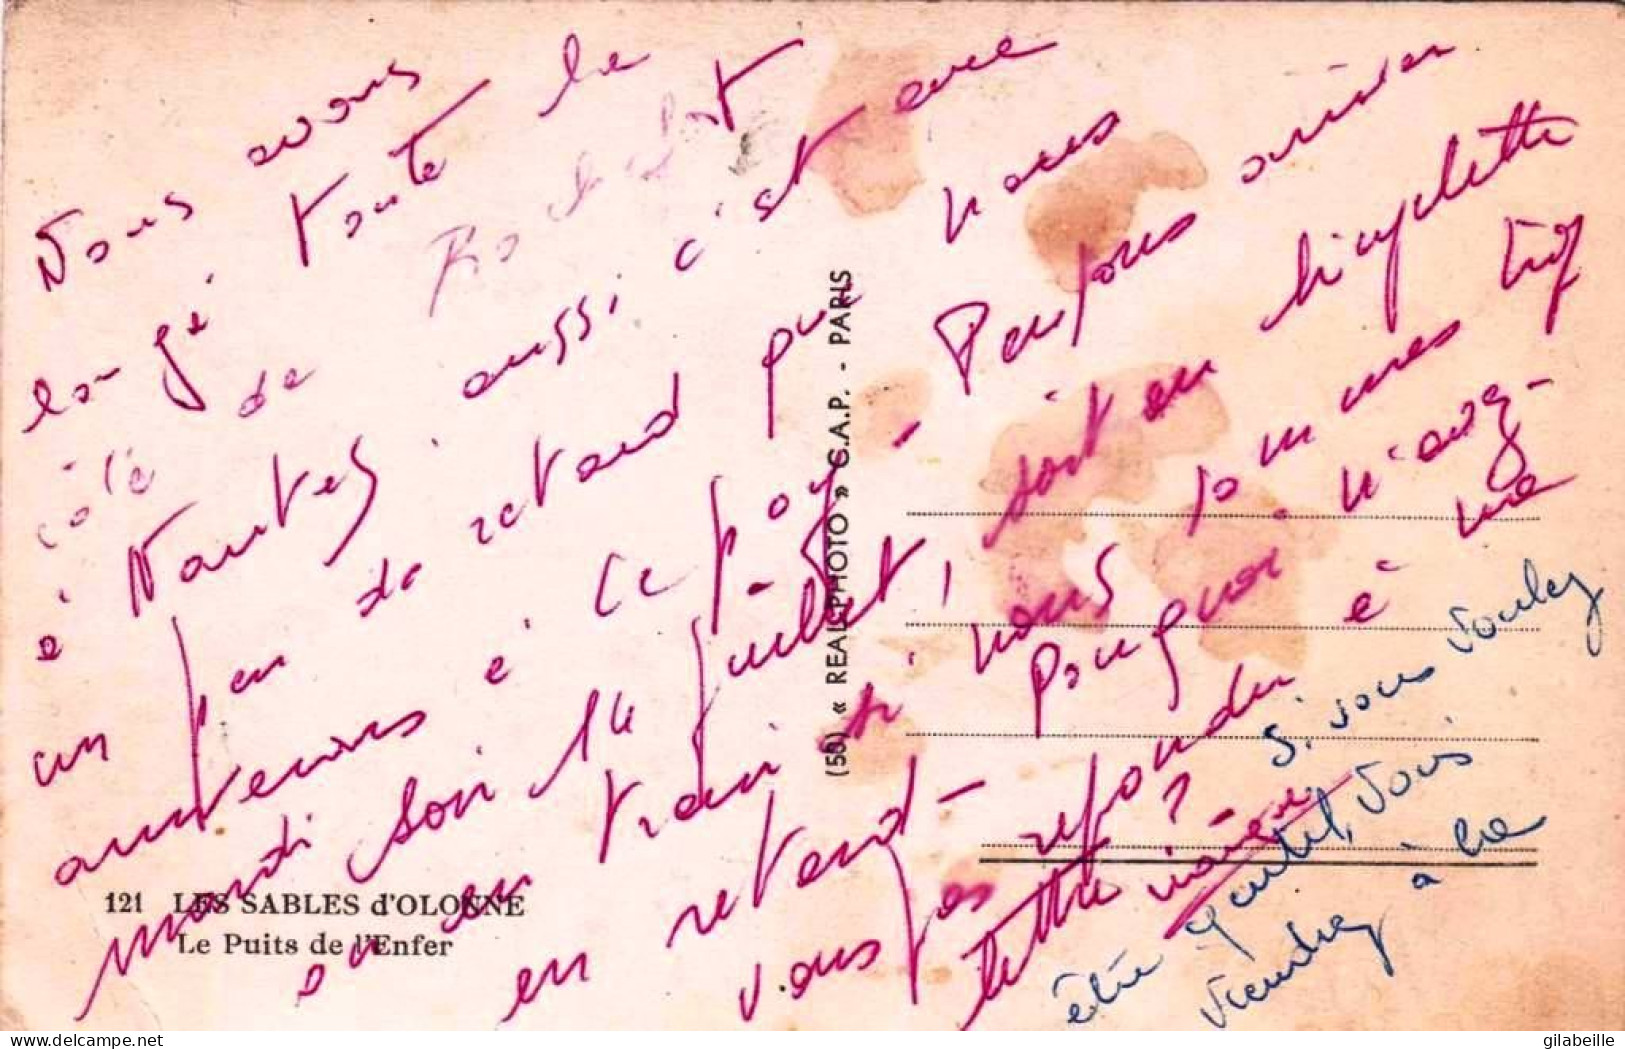 Nous avons
longé toute la
côte de Rochefort
à Nantes aussi c'est avec
un peu de retard que nous
arriverons à Cepoy - Pensons arriver
mardi soir 14 juillet, soit en bicyclette
ou en train si nous sommes trop
en retard - Pourquoi n'avez-
vous pas répondu à ma
lettre ?
Si vous voulez
être gentil, vous
viendrez à la
121 LES SABLES d'OLONNE
Le Puits de l'Enfer
(58) « REAL-PHOTO » C.A.P. - PARIS
delcampe.net
gilabeille